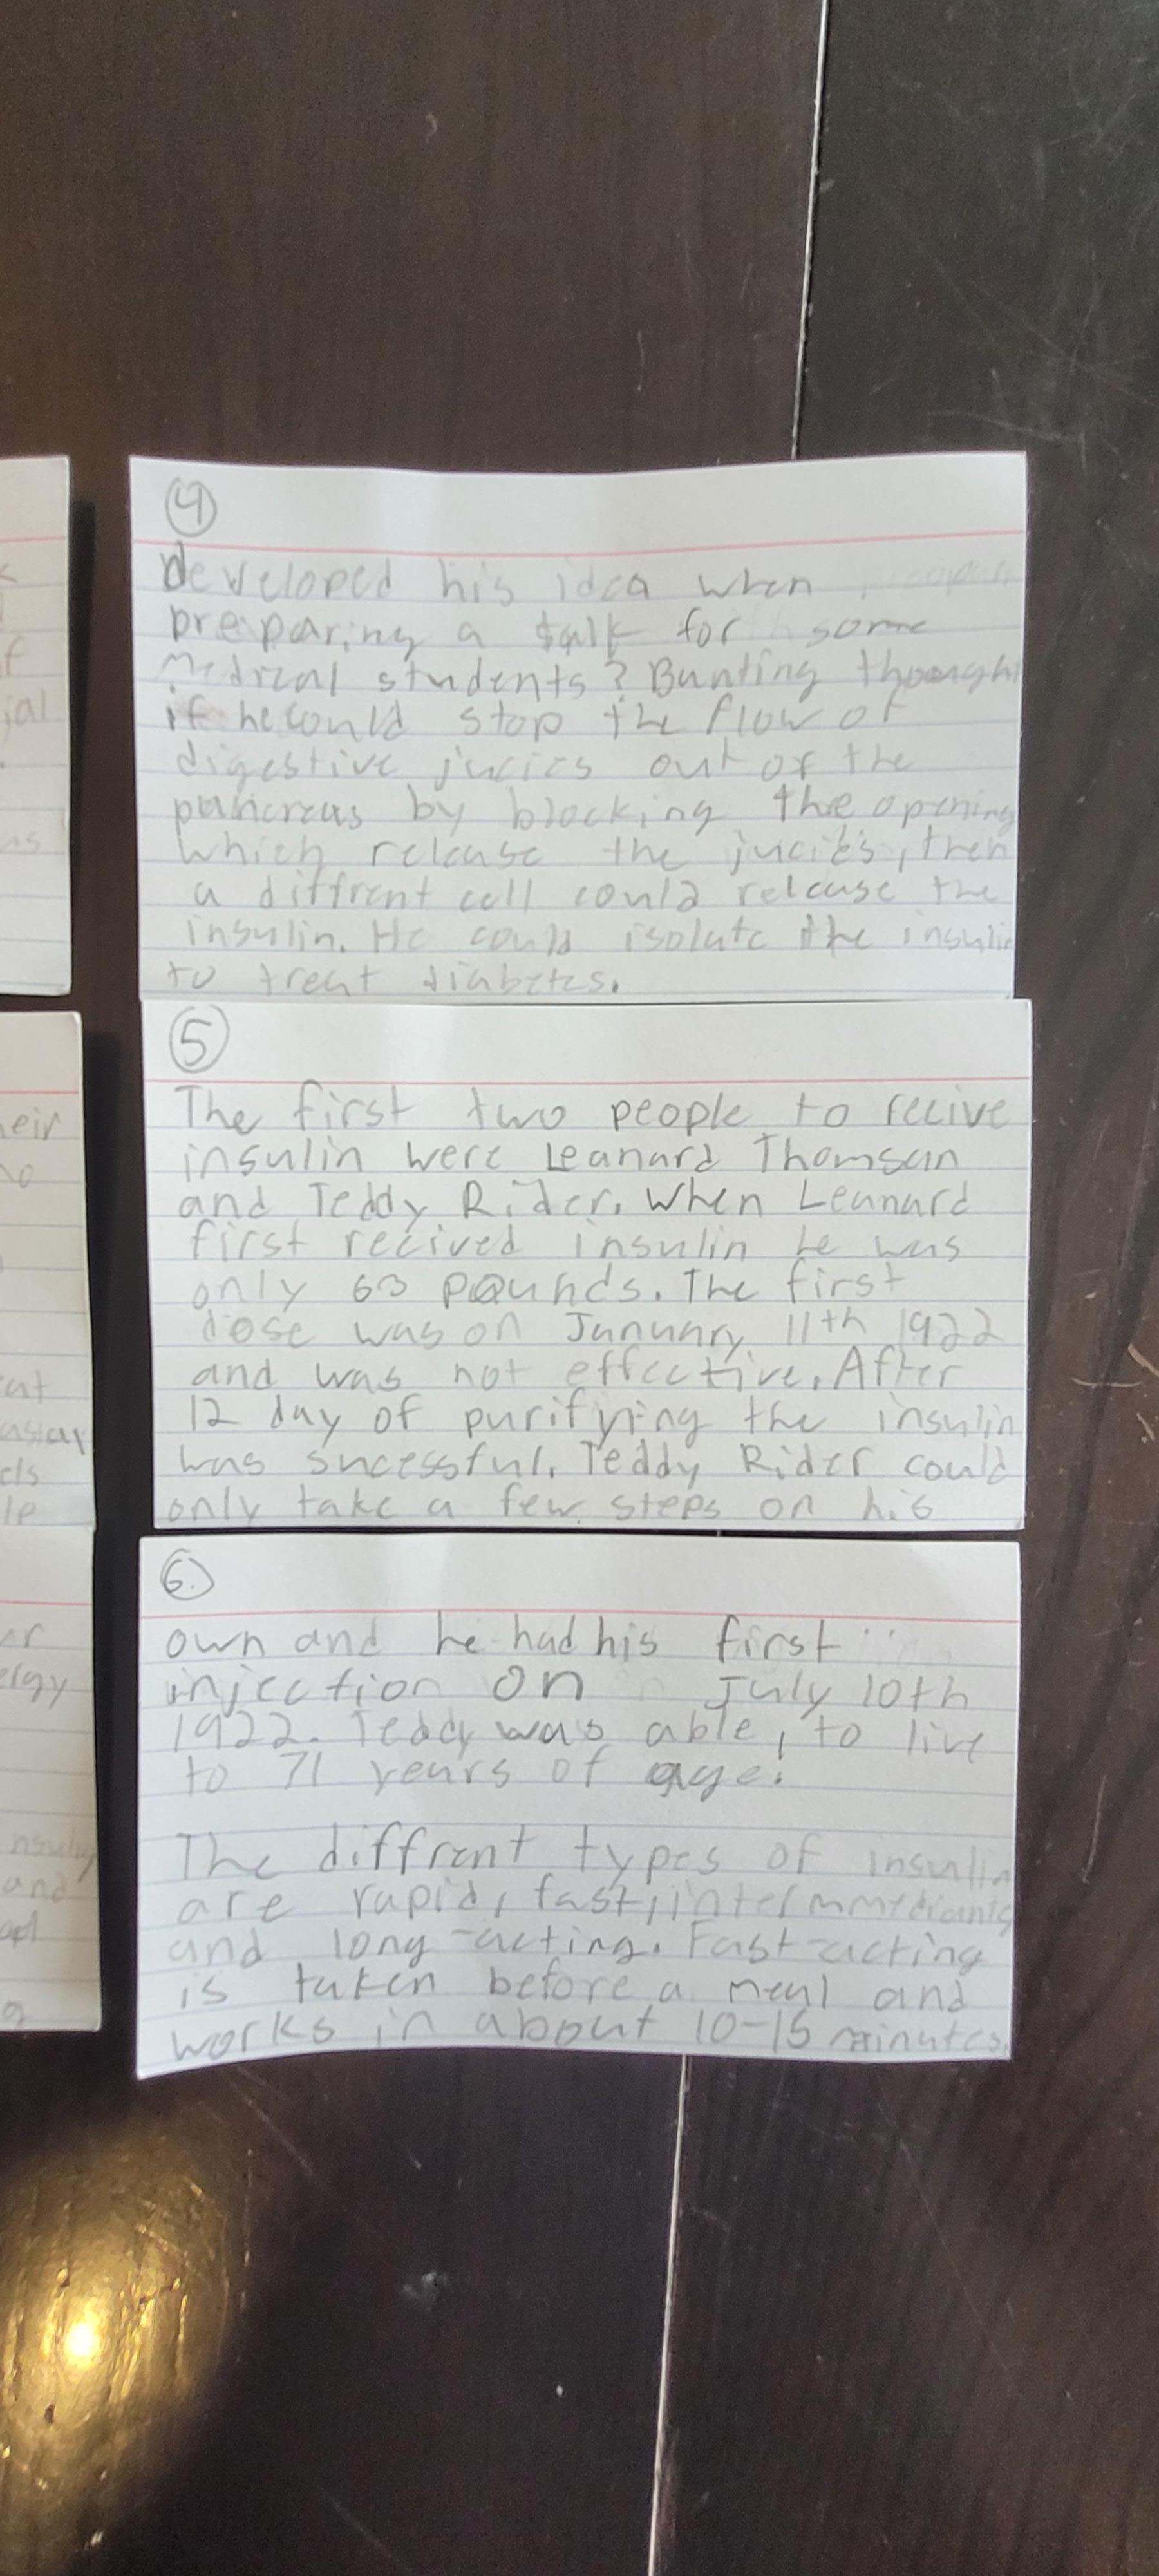 ④
developed his idea when
preparing a talk for some
Medical students? Bunting thought
if he could stop the flow of
digestive jucies out of the
pancreas by blocking the opening
which release the jucies, then
a diffrent cell could release the
insulin. He could isolate the insulin
to treat diabetes.
⑤
The first two people to recive
insulin were Leanard Thomson
and Teddy Rider. When Leanard
first recived insulin he was
only 63 pounds. The first
dose was on January 11th 1922
and was not effective. After
12 day of purifying the insulin
was sucessful. Teddy Rider could
only take a few steps on his
6.
own and he had his first
injection on July 10th
1922. Teddy was able, to live
to 71 years of age.
The diffrent types of insulin
are rapid, fast,
and long-acting. Fast-acting
is taken before a meal and
works in about 10-15 minutes.
eir
and